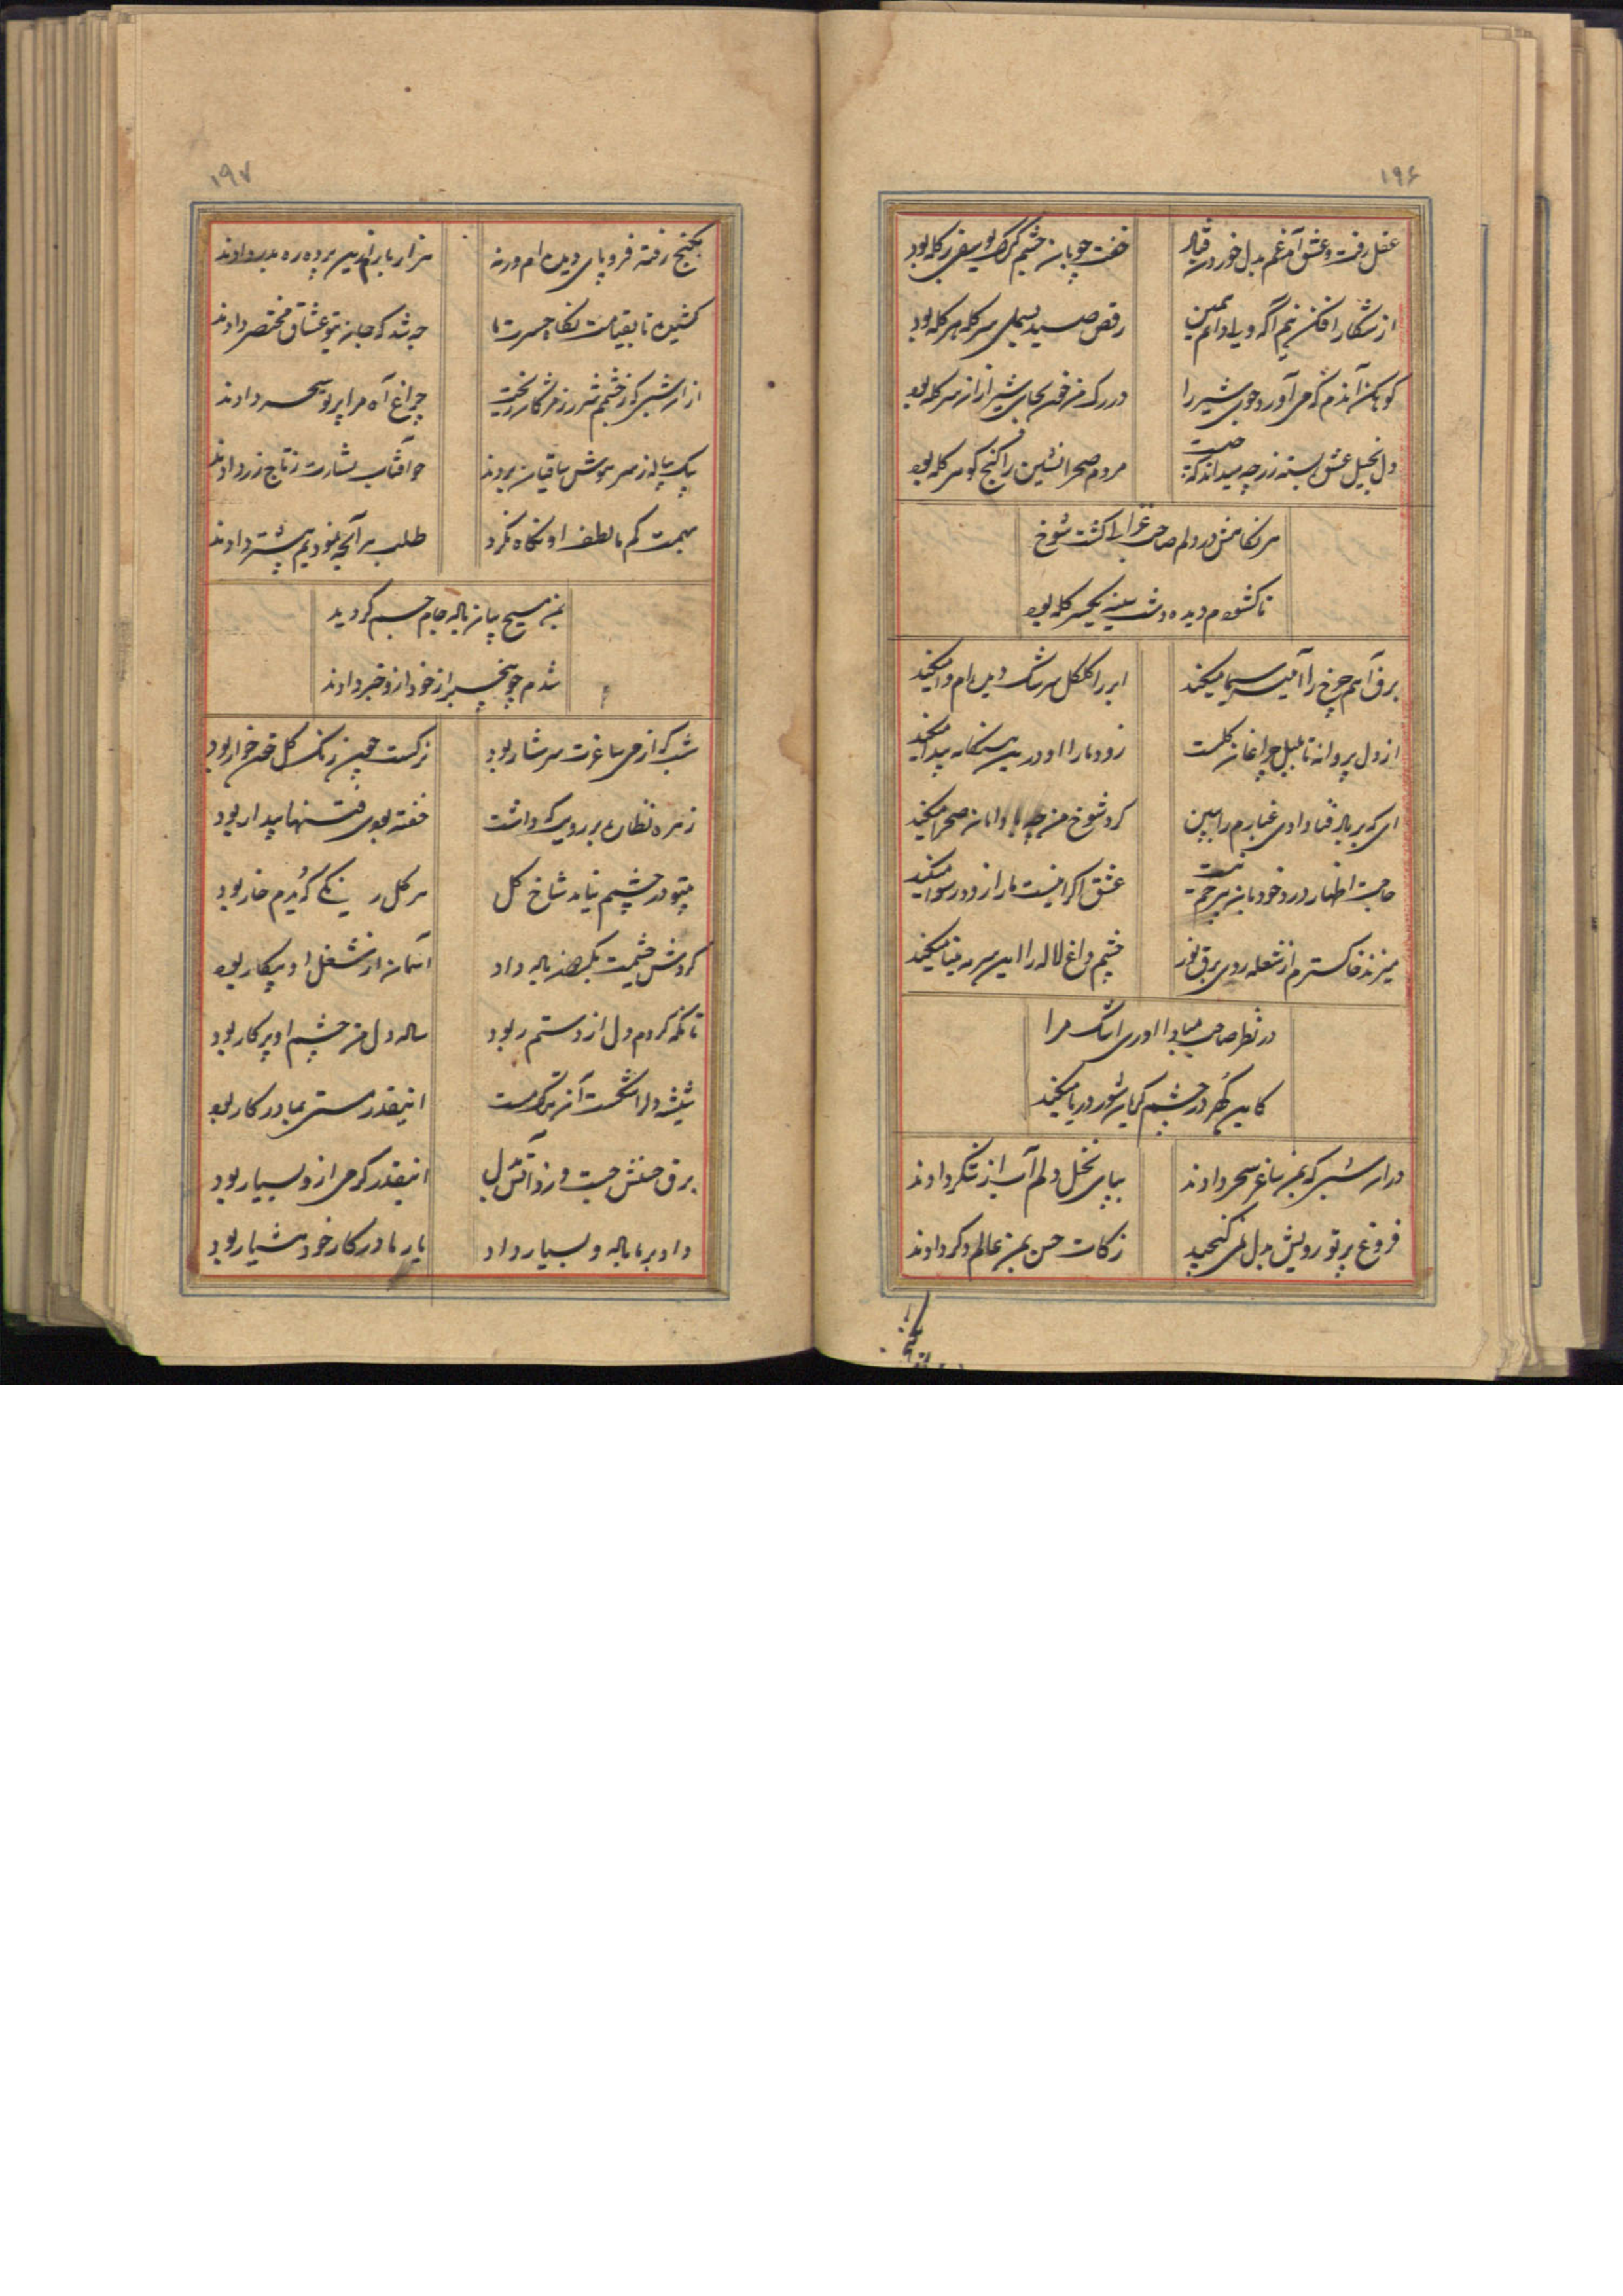 ۱۹۶
عقل رفت و عشق آمد غم بدل خوردن قیاد
خفت چوپان چشم گرگ یوسفی در گله بود
از شکار افکن نیم آگه ولی دانم همین
رقص صید بسملی سر گله هر گله بود
کوهکن آندم که می آورد جوی شیر را
در رگ من خون بجای شیر از سر گله بود
دل بخیل عشق بسته زر چه میداند که چیست
مردم صحرا نشین را گنج گوهر گله بود
هر نگاهش در دلم صاحب غزالی گشت شوخ
تا گشودم دیده دشت سینه یکسر گله بود
برق آهم چرخ را آئینه سیما میکند
ابر را گلگل سرشک دیده ام وا میکند
از دل پروانه تا بلبل چراغان گلست
زود ما را او درین هنگامه پیدا میکند
ای که بر باد فنا دادی غبارم را ببین
گرد شوخ من دامان صحرا میکند
حاجت اظهار درد خود بان بیرحم نیست
عشق اگر اینست ما را زود رسوا میکند
میزند خاکسترم از شعله روی برق نور
چشم داغ لاله را این سرمه بینا میکند
در نظر صاحب میاور اشک مرا
کاین گهر در چشم گریان شور دریا میکند
در ان شبی که بمن ساغر سحر دادند
بپای نخل دلم آب از شکر دادند
فروغ پرتو رویش بدل نمی گنجید
زکات حسن بمن عالم دگر دادند
۱۹۷
بگنج رفته فرو پای دیده ام ورنه
هزار بار ازین پرده ره بدر دادند
کشیده تا بقیامت نگاه حسرت ما
چه شد که جان بتو عشاق مختصر دادند
از ان شبی که ز چشمم شرر ز مژگان ریخت
چراغ آه مرا پرتو سحر دادند
بیک پیاله ز سر هوش ساقیان بردند
چو آفتاب بشارت ز تاج زر دادند
بهمت کم ما لطف او نگاه نکرد
طلب هر آنچه نمودیم بیشتر دادند
بمن مسیح پیاله جام جم گردید
شدم چو بیخبر از خود ازو خبر دادند
شب که از می ساغرت سرشار بود
نرگست چین رنگ گل خون خوار بود
زهره نظاره بر رویت که داشت
خفته بودی فتنها بیدار بود
بیتو در چشمم نیاید شاخ گل
هر گل رنگینی که دیدم خار بود
گردش چشمت بکف پیاله داد
آسمان از شغل او بیکار بود
تا نگه کردم دل از دستم ربود
ساده دل من چشم او پرکار بود
شیشه دل را شکست آن ترک مست
اینقدر مستی بما در کار بود
برق حسنش جست و زد آتش بدل
اینقدر گرمی ازو بسیار بود
داد بر ما باده و بسیار داد
یار ما در کار خود هشیار بود